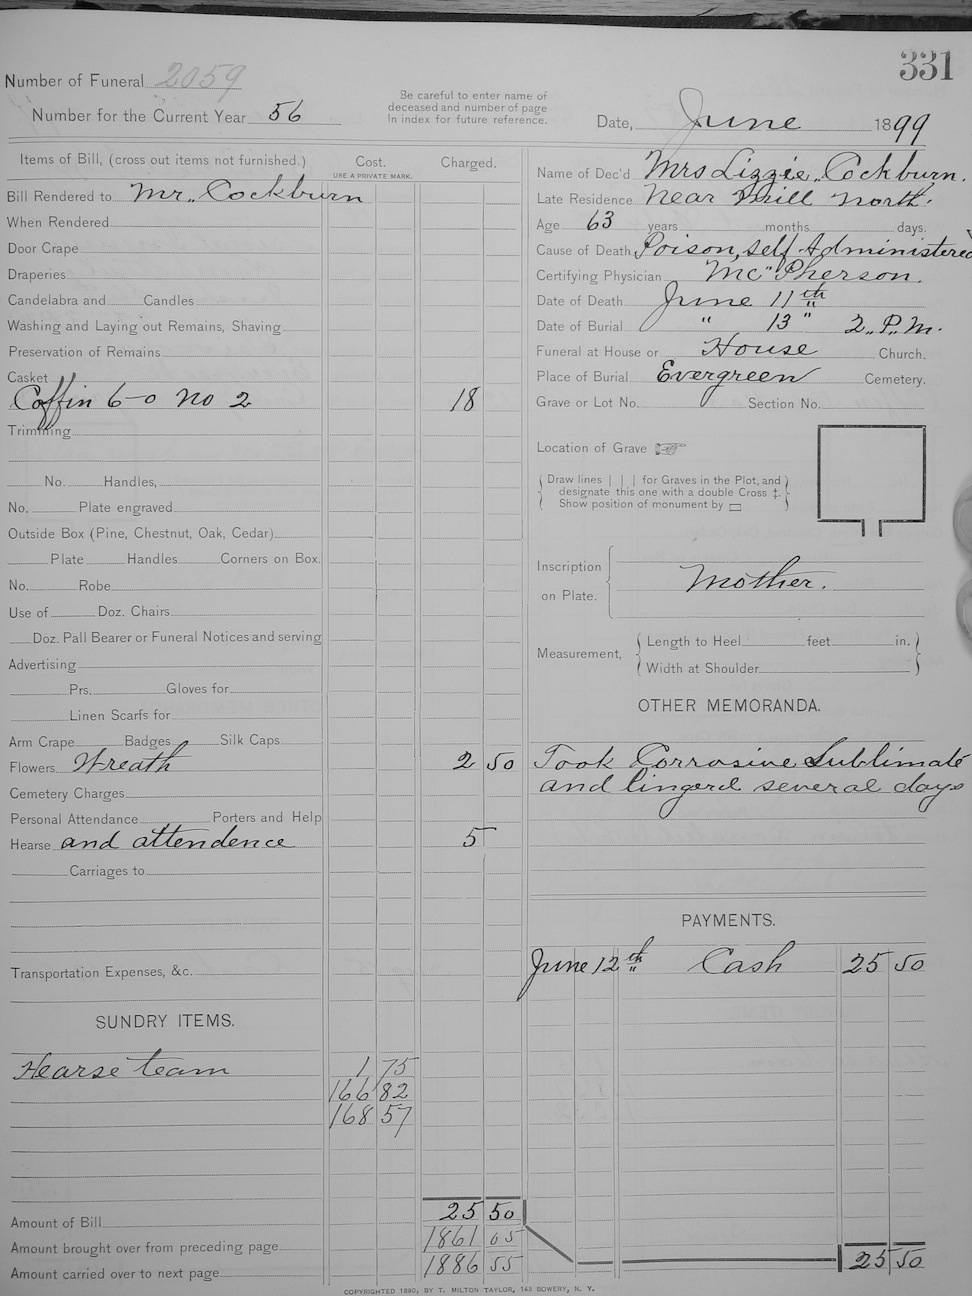 331
Number of Funeral 2059
Number for the Current Year 56
Be careful to enter name of
deceased and number of page
In index for future reference.
Date, June 1899
Items of Bill, (cross out items not furnished.)
Cost.
USE A PRIVATE MARK.
Charged.
Bill Rendered to Mr. Cockburn
When Rendered
Door Crape
Draperies
Candelabra and Candles
Washing and Laying out Remains, Shaving
Preservation of Remains
Casket
Coffin 6-0 No 2 18
Trimming
No. Handles,
No. Plate engraved
Outside Box (Pine, Chestnut, Oak, Cedar)
Plate Handles Corners on Box.
No. Robe
Use of Doz. Chairs
Doz. Pall Bearer or Funeral Notices and serving
Advertising
Prs. Gloves for
Linen Scarfs for
Arm Crape Badges Silk Caps
Flowers Wreath 2 50
Cemetery Charges
Personal Attendance Porters and Help
Hearse and attendence 5
Carriages to
Transportation Expenses, &c.
SUNDRY ITEMS.
Hearse team 1 75
166 82
168 57
Amount of Bill 25 50
Amount brought over from preceding page 1861 05
Amount carried over to next page 1886 55
Name of Dec'd Mrs Lizzie Cockburn.
Late Residence Near Mill North.
Age 63 years months days.
Cause of Death Poison, self Administered
Certifying Physician McPherson.
Date of Death June 11th
Date of Burial " 13 " 2 P.M.
Funeral at House or House Church.
Place of Burial Evergreen Cemetery.
Grave or Lot No. Section No.
Location of Grave
Draw lines | | | for Graves in the Plot, and
designate this one with a double Cross ‡.
Show position of monument by
Inscription
on Plate.
Mother.
Measurement,
Length to Heel feet in.
Width at Shoulder
OTHER MEMORANDA.
Took Corrosive Sublimate
and lingerd several days
PAYMENTS.
June 12th Cash 25 50
25 50
COPYRIGHTED 1890, BY T. MILTON TAYLOR, 143 BOWERY, N. Y.